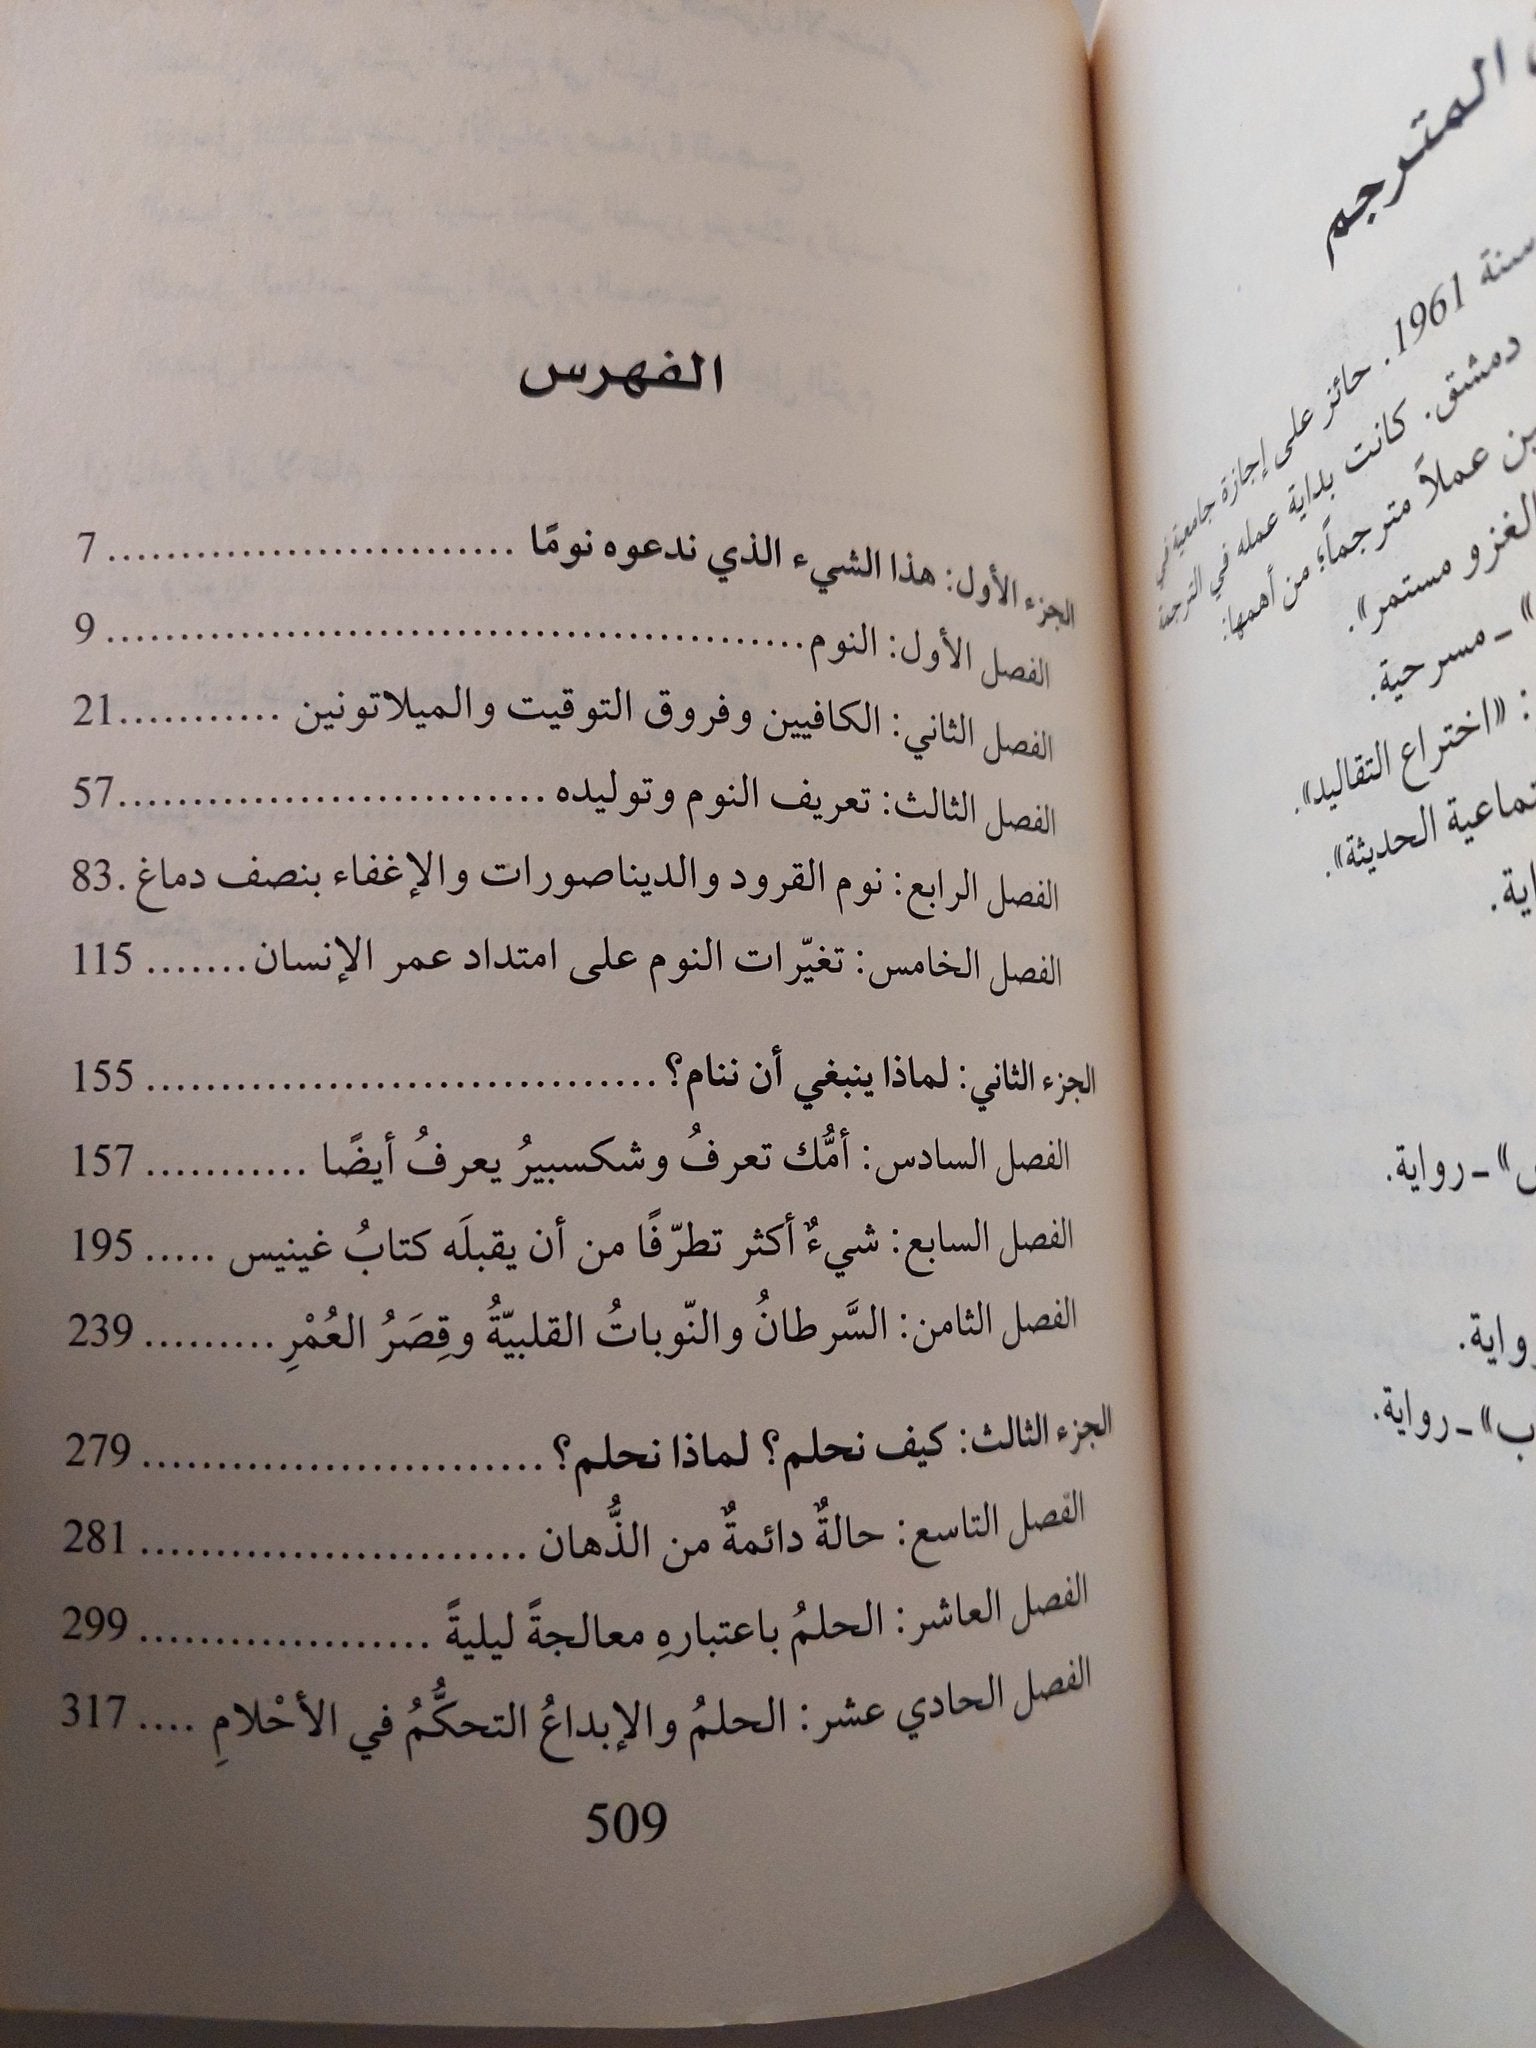 المترجم
سنة 1961. حائز على إجازة جامعية في
دمشق. كانت بداية عمله في الترجمة
عملاً مترجماً؛ من أهمها:
الغزو مستمر».
» ـ مسرحية.
: «اختراع التقاليد».
الحديثة».
» ـ رواية.
رواية.
ب» ـ رواية.
الفهرس
الجزء الأول: هذا الشيء الذي ندعوه نومًا ........................... 7
الفصل الأول: النوم............................................... 9
الفصل الثاني: الكافيين وفروق التوقيت والميلاتونين ...........21
الفصل الثالث: تعريف النوم وتوليده ............................57
الفصل الرابع: نوم القرود والديناصورات والإغفاء بنصف دماغ .83
الفصل الخامس: تغيّرات النوم على امتداد عمر الإنسان....... 115
الجزء الثاني: لماذا ينبغي أن ننام؟ .................................. 155
الفصل السادس: أمُّك تعرفُ وشكسبيرُ يعرفُ أيضًا ........... 157
الفصل السابع: شيءٌ أكثر تطرّفًا من أن يقبلَه كتابُ غينيس ..... 195
الفصل الثامن: السَّرطانُ والنّوباتُ القلبيّةُ وقِصَرُ العُمْرِ......... 239
الجزء الثالث: كيف نحلم؟ لماذا نحلم؟ ........................... 279
الفصل التاسع: حالةٌ دائمةٌ من الذُّهان .......................... 281
الفصل العاشر: الحلمُ باعتبارهِ معالجةً ليليةً .................... 299
الفصل الحادي عشر: الحلمُ والإبداعُ التحكُّمُ في الأحْلامِ .... 317
509